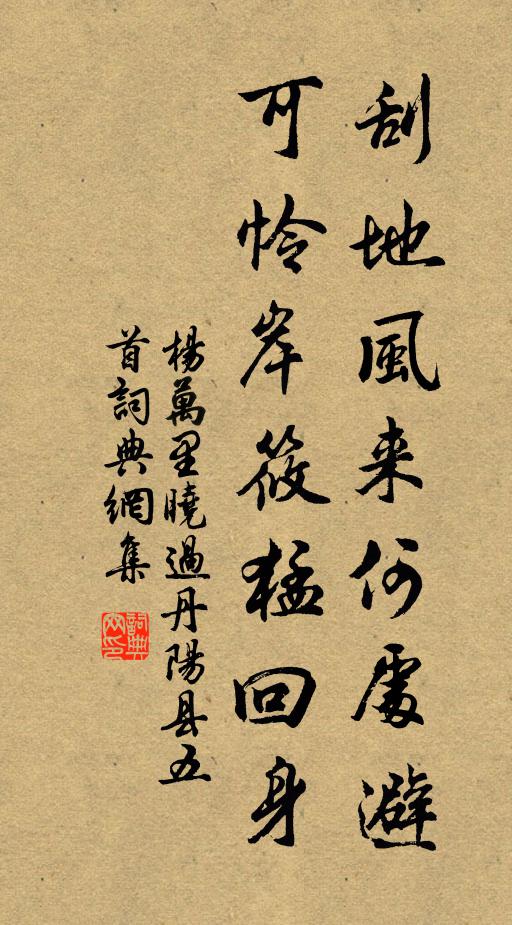 刮地風来何處避
可怜岸筱猛回身
楊萬里曉過丹陽县五
首詞典網集
詞典
网印